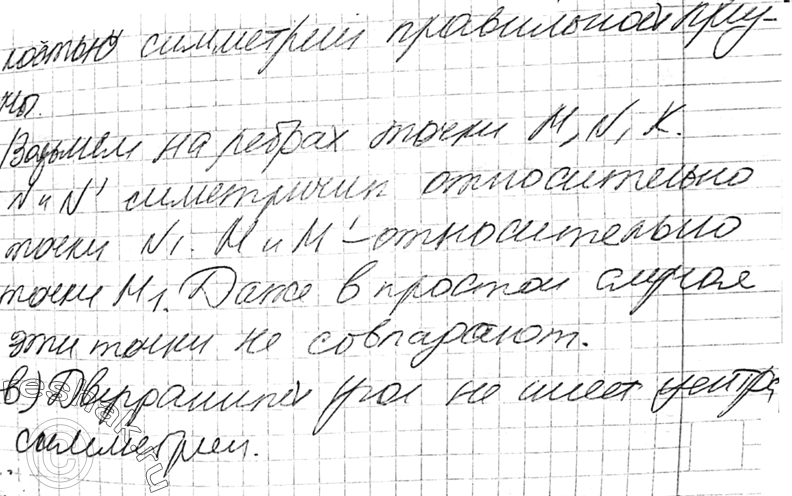 костью симметрии правильной приз-
мы.
Возьмем на ребрах точки M, N, K.
N и N' симетричин относительно
точки N1. M и M' – относительно
точки M1. Даже в простом случае
эти точки не совпадают.
в) Двугранный угол не имеет центра
симметрии.